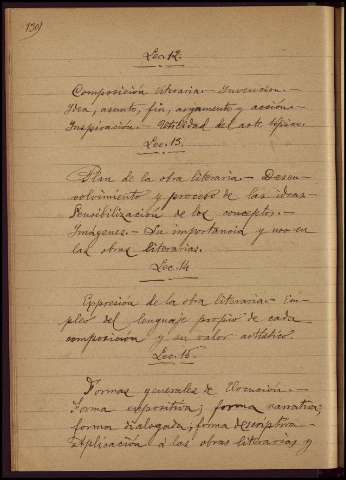 130
Lec. 12.
Composición literaria.- Invencion.-
Idea, asunto, fin, argumento y acción.-
Inspiración.- Utilidad del art.
Lec. 13.
Plan de la obra literaria.- Desen-
volvimiento y proceso de las ideas.-
Sensibilización de los conceptos.-
Imágenes.- Su importancia y uso en
las obras literarias.
Lec. 14
Expresión de la obra literaria.- Em-
pleo del lenguaje propio de cada
composición y su valor artístico.
Lec. 15.
Formas generales de Elocución.-
Forma expositiva; forma narrativa;
forma dialogada; forma descriptiva.-
Aplicación á las obras literarias y